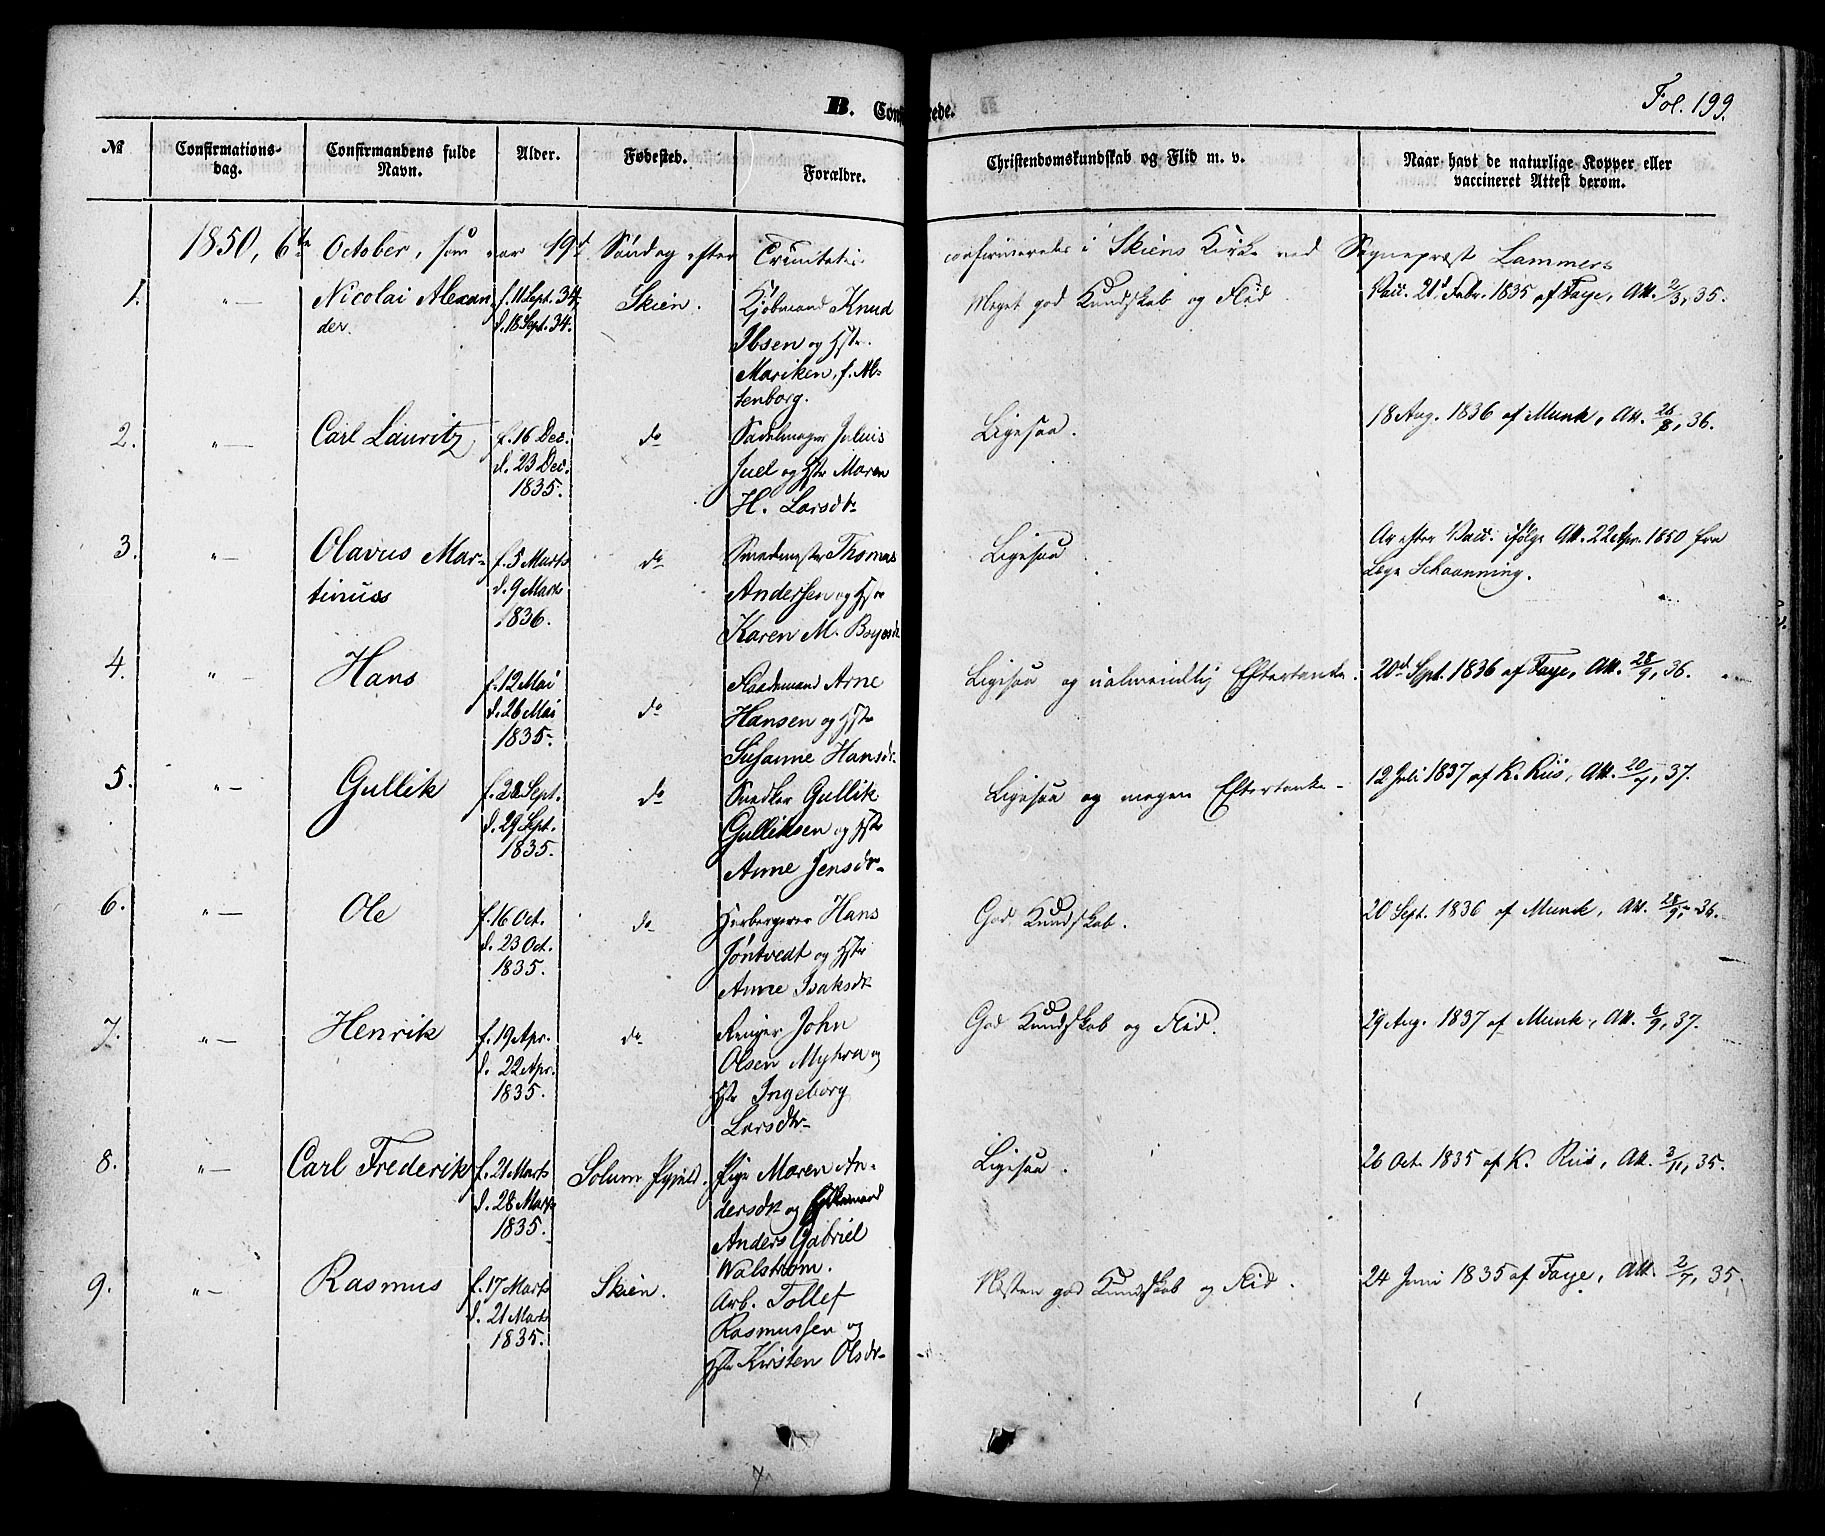 Fol. 199.
B. Confirmerede.
№
Confirmations-
dag.
Confirmandens fulde
Navn.
Alder.
Fødested.
Forældre.
Christendomskundskab og Flid m. v.
Naar havt de naturlige Kopper eller
vaccineret Attest derom.
1850, 6te October, som var 19d Søndag efter Trinitatis confirmeredes i Skiens Kirke ved Sognepræst Lammers
1. "— Nicolai Alexan f. 11 Sept. 34, Skien. Kjøbmand Knud Meget god Kundskab og Flid. Vacc. 21d Febr. 1835 af Faye, Att. 2/3, 35.
der. d. 18 Sept. 34.
Ibsen og Hstr.
Mariken, f. Al-
tenborg.
2. "— Carl Lauritz f. 16 Dec. do Sadelmager Julius Ligesaa. 18 Aug. 1836 af Munk, Att. 26/8, 36.
d. 23 Dec. Juel og Hstr Maren
1835. H. Larsdtr
3. "— Olavus Mar- f. 5 Marts do Smedmester Thomas Ligesaa Ar efter Vacc. ifølge Att. 22 Apr. 1850 fra
tinus d. 9 Marts Andersen og Hstr Læge Schaanning.
1836. Karen M.
4. "— Hans f. 12 Mai do Arne Ligesaa og ualmindelig Eftertanke. 20d Sept. 1836 af Faye, Att. 28/9, 36.
d. 26 Mai Hansen og Hstr
1835. Susanne Hansdr
5. "— Gullik f. 28 Sept. do Snedker Gullik Ligesaa og megen Eftertanke 12 Juli 1837 af K. Riis, Att. 20/7, 37.
d. 29 Sept. Gulliksen og Hstr
1835. Anne Jensdr
6. "— Ole f. 16 Oct. do Herbergerer Hans God Kundskab. 20 Sept. 1836 af Munk, Att. 28/9, 36.
d. 23 Oct. Jøntvedt og Hstr
1835. Anne Isaksdr
7. "— Henrik f. 19 Apr. do John God Kundskab og Flid. 29 Aug. 1837 af Munk, Att. 6/9, 37.
d. 22 Apr. Olsen Myhra og
1835. Hstr Ingeborg
Larsdtr
8. "— Carl Frederik f. 21 Marts Solum Pgjeld. Pige Maren An- Ligesaa. 26 Oct. 1835 af K. Riis, Att. 3/11, 35.
d. 28 Marts dersdtr og
1835. Anders Gabriel
Walstrøm.
9. "— Rasmus f. 17 Marts Skien. Arb. Tollef Næsten god Kundskab og Flid. 24 Juni 1835 af Faye, Att. 2/7, 35.
d. 21 Marts Rasmussen og
1835. Hstr Kirsten Olsdr